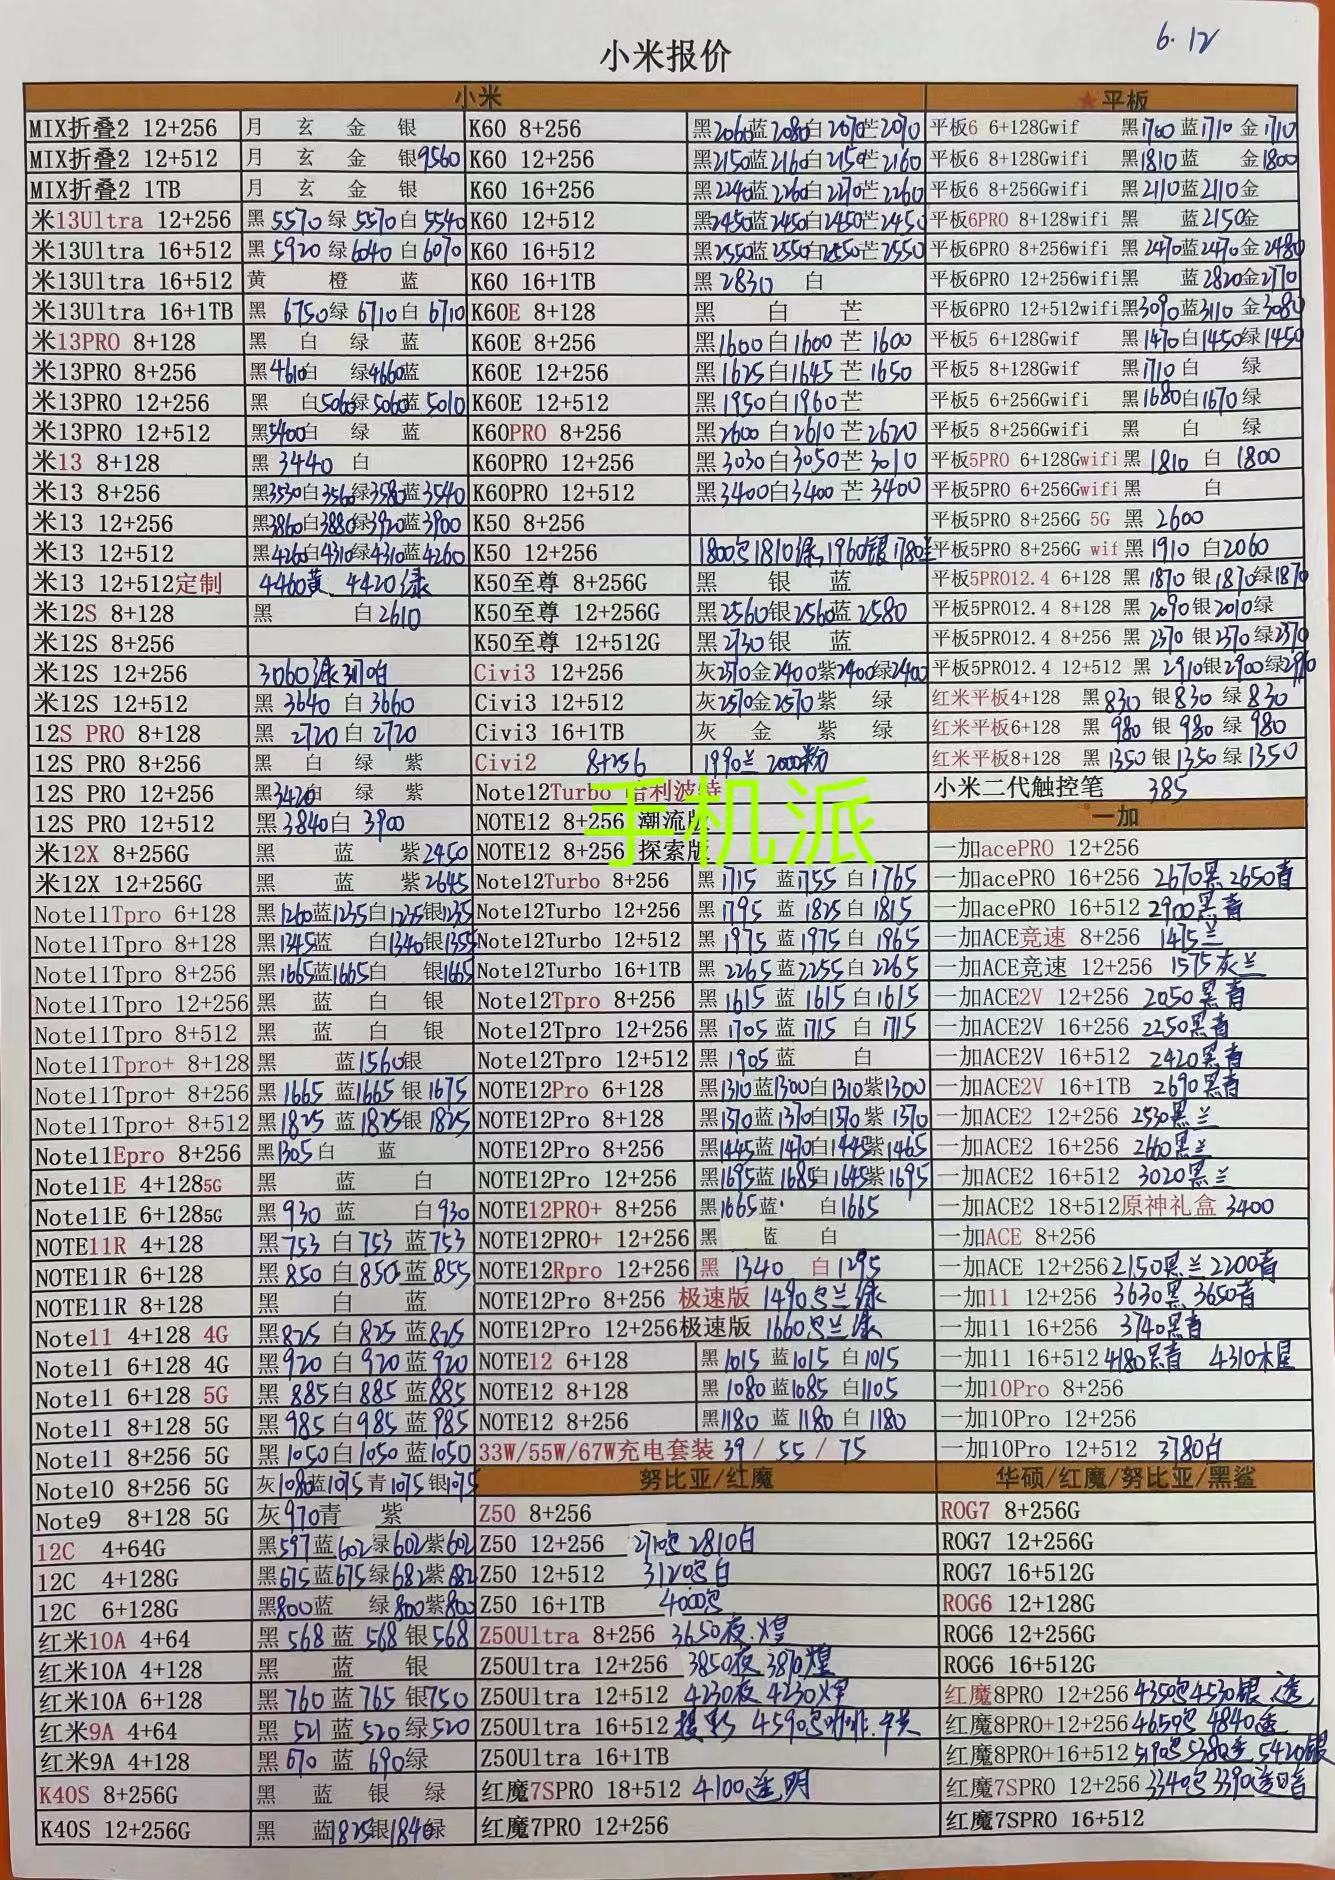 6.12
小米报价
小米
MIX折叠2 12+256 月 玄 金 银
MIX折叠2 12+512 月 玄 金 银9560
MIX折叠2 1TB 月 玄 金 银
米13Ultra 12+256 黑5570 绿5570 白5540
米13Ultra 16+512 黑5920 绿6040 白6070
米13Ultra 16+512 黄 橙 蓝
米13Ultra 16+1TB 黑 6750绿 6710白 6710
米13PRO 8+128 黑 白 绿 蓝
米13PRO 8+256 黑4610白 绿4660蓝
米13PRO 12+256 黑 白5060绿5060蓝5010
米13PRO 12+512 黑5400白 绿 蓝
米13 8+128 黑 3440 白
米13 8+256 黑3530白3560绿3580蓝3540
米13 12+256 黑3860白3880绿3920蓝3900
米13 12+512 黑4260白4310绿4310蓝4260
米13 12+512定制 4460黄 4420绿
米12S 8+128 黑 白2610
米12S 8+256
米12S 12+256 3060绿
米12S 12+512 黑 3640 白 3660
12S PRO 8+128 黑 2720白 2720
12S PRO 8+256 黑 白 绿 紫
12S PRO 12+256 黑3420白 绿 紫
12S PRO 12+512 黑3840白 3900
米12X 8+256G 黑 蓝 紫2450
米12X 12+256G 黑 蓝 紫2645
Note11Tpro 6+128 黑1260蓝1235白1235银1235
Note11Tpro 8+128 黑1345蓝 白1340银1355
Note11Tpro 8+256 黑1665蓝1665白 银1665
Note11Tpro 12+256 黑 蓝 白 银
Note11Tpro 8+512 黑 蓝 白 银
Note11Tpro+ 8+128 黑 蓝1560银
Note11Tpro+ 8+256 黑 1665 蓝1665 银1675
Note11Tpro+ 8+512 黑1825 蓝1825银1825
Note11Epro 8+256 黑1305白 蓝
Note11E 4+128 5G 黑 蓝 白
Note11E 6+128 5G 黑930 蓝 白930
NOTE11R 4+128 黑753 白753 蓝753
NOTE11R 6+128 黑850 白850 蓝855
NOTE11R 8+128 黑 白 蓝
Note11 4+128 4G 黑825 白825 蓝825
Note11 6+128 4G 黑920 白920 蓝920
Note11 6+128 5G 黑 885白885 蓝885
Note11 8+128 5G 黑985白985 蓝985
Note11 8+256 5G 黑1050白1050 蓝1050
Note10 8+256 5G 灰1080蓝1075青1075银1075
Note9 8+128 5G 灰970青 紫
12C 4+64G 黑597蓝602绿602紫602
12C 4+128G 黑675蓝675绿682紫682
12C 6+128G 黑800蓝 绿800紫800
红米10A 4+64 黑568 蓝 568 银568
红米10A 4+128 黑 蓝 银
红米10A 6+128 黑760 蓝765 银750
红米9A 4+64 黑 521 蓝520绿520
红米9A 4+128 黑670 蓝690绿
K40S 8+256G 黑 蓝 银 绿
K40S 12+256G 黑 蓝1825银1840绿
K60 8+256 黑2060蓝2080白2070芒2070
K60 12+256 黑2150蓝2160白2150芒2160
K60 16+256 黑2240蓝2260白2270芒2260
K60 12+512 黑2450蓝2450白2450芒2450
K60 16+512 黑2550蓝2550白2550芒2550
K60 16+1TB 黑2830 白
K60E 8+128 黑 白 芒
K60E 8+256 黑1600白1600 芒1600
K60E 12+256 黑1625白1645 芒1650
K60E 12+512 黑1950白1960芒
K60PRO 8+256 黑2600 白2610芒2620
K60PRO 12+256 黑3030白3050芒3010
K60PRO 12+512 黑3400白3400 芒3400
K50 8+256
K50 12+256 1800包1810绿 1960银1780兰
K50至尊 8+256G 黑 银 蓝
K50至尊 12+256G 黑2560银2560蓝2580
K50至尊 12+512G 黑2730银 蓝
Civi3 12+256 灰2370金2400紫2400绿2400
Civi3 12+512 灰2570金2570紫 绿
Civi3 16+1TB 灰 金 紫 绿
Civi2 8+256 1990兰 2000粉
Note12Turbo 哈利波特
手机派
NOTE12 8+256 潮流版
NOTE12 8+256 探索版
Note12Turbo 8+256 黑1715 蓝1755 白1765
Note12Turbo 12+256 黑1795 蓝 1825白1815
Note12Turbo 12+512 黑1975 蓝1975白 1965
Note12Turbo 16+1TB 黑2265 蓝2255白2265
Note12Tpro 8+256 黑1615 蓝1615 白1615
Note12Tpro 12+256 黑1705 蓝1715 白1715
Note12Tpro 12+512 黑1905蓝 白
NOTE12Pro 6+128 黑1310蓝1300白1310紫1300
NOTE12Pro 8+128 黑1370蓝1370白1370紫1370
NOTE12Pro 8+256 黑1445蓝1470白1445紫1465
NOTE12Pro 12+256 黑1695蓝1685白1645紫1695
NOTE12PRO+ 8+256 黑1665蓝 白1665
NOTE12PRO+ 12+256 黑 蓝 白
NOTE12Rpro 12+256 黑 1340 白1295
NOTE12Pro 8+256 极速版 1490包兰绿
NOTE12Pro 12+256极速版 1660包兰绿
NOTE12 6+128 黑1015 蓝1015 白1015
NOTE12 8+128 黑1080蓝1085 白1105
NOTE12 8+256 黑1180 蓝1180白 1180
33W/55W/67W充电套装 39 / 55 / 75
努比亚/红魔
Z50 8+256
Z50 12+256 2710包 2810白
Z50 12+512 3120包白
Z50 16+1TB 4000包
Z50Ultra 8+256 3650夜.煌
Z50Ultra 12+256 3850夜 3870煌
Z50Ultra 12+512 4230夜 4230煌
Z50Ultra 16+512 摄影 4590包咖啡
Z50Ultra 16+1TB
红魔7SPRO 18+512 4100透明
红魔7PRO 12+256
★平板
平板6 6+128Gwif 黑1700 蓝1710 金1710
平板6 8+128Gwifi 黑1810 蓝 金1800
平板6 8+256Gwifi 黑2110蓝2110金
平板6PRO 8+128wifi 黑 蓝2150金
平板6PRO 8+256wifi 黑2470蓝2470金2480
平板6PRO 12+256wifi黑 蓝2820金2770
平板6PRO 12+512wifi黑3090蓝3110金3080
平板5 6+128Gwifi 黑1470白1450绿1450
平板5 8+128Gwifi 黑1710白 绿
平板5 6+256Gwifi 黑1680白1670绿
平板5 8+256Gwifi 黑 白 绿
平板5PRO 6+128Gwifi黑 1810 白 1800
平板5PRO 6+256Gwifi黑 白
平板5PRO 8+256G 5G 黑 2600
平板5PRO 8+256G wif 黑1910 白2060
平板5PRO12.4 6+128 黑 1870 银1870绿1870
平板5PRO12.4 8+128 黑 2090银2010绿
平板5PRO12.4 8+256 黑 2370 银2370绿2370
平板5PRO12.4 12+512 黑 2910银2900绿2910
红米平板4+128 黑830 银830 绿830
红米平板6+128 黑 980 银 980 绿 980
红米平板8+128 黑1350银1350绿1350
小米二代触控笔 385
一加
一加acePRO 12+256
一加acePRO 16+256 2670黑2650青
一加acePRO 16+512 2900黑青
一加ACE竞速 8+256 1475兰
一加ACE竞速 12+256 1575灰兰
一加ACE2V 12+256 2050黑青
一加ACE2V 16+256 2250黑青
一加ACE2V 16+512 2420黑青
一加ACE2V 16+1TB 2690黑青
一加ACE2 12+256 2530黑兰
一加ACE2 16+256 2660黑兰
一加ACE2 16+512 3020黑兰
一加ACE2 18+512原神礼盒 3400
一加ACE 8+256
一加ACE 12+256 2150黑兰2200青
一加11 12+256 3630黑 3650青
一加11 16+256 3740黑青
一加11 16+512 4180黑青 4310木星
一加10Pro 8+256
一加10Pro 12+256
一加10Pro 12+512 3780白
华硕/红魔/努比亚/黑鲨
ROG7 8+256G
ROG7 12+256G
ROG7 16+512G
ROG6 12+128G
ROG6 12+256G
ROG6 16+512G
红魔8PRO 12+256 4350包4530银.透
红魔8PRO+12+256 4650包 4840透
红魔8PRO+16+512 5190包5380透 5420银
红魔7SPRO 12+256 3340包3390透
红魔7SPRO 16+512